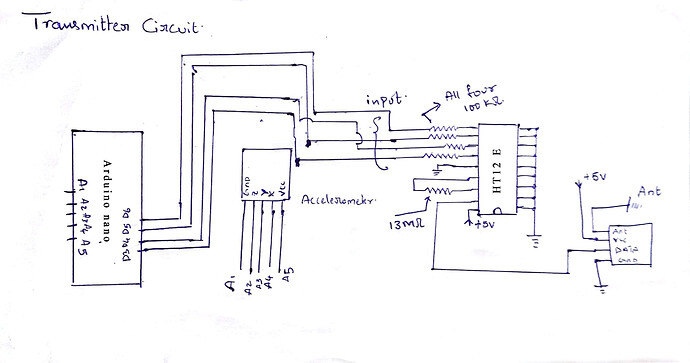 Transmitter Circuit.
input.
All four
100KΩ
Arduino nano
A1 A2 A3 A4 A5
D6 D5 D4 D3
GND
Z
Y
X
VCC
Accelerometer.
A1
A2
A3
A4
A5
HT12 E
13MΩ
+5V
+5V
Ant
Ant
VCC
DATA
GND